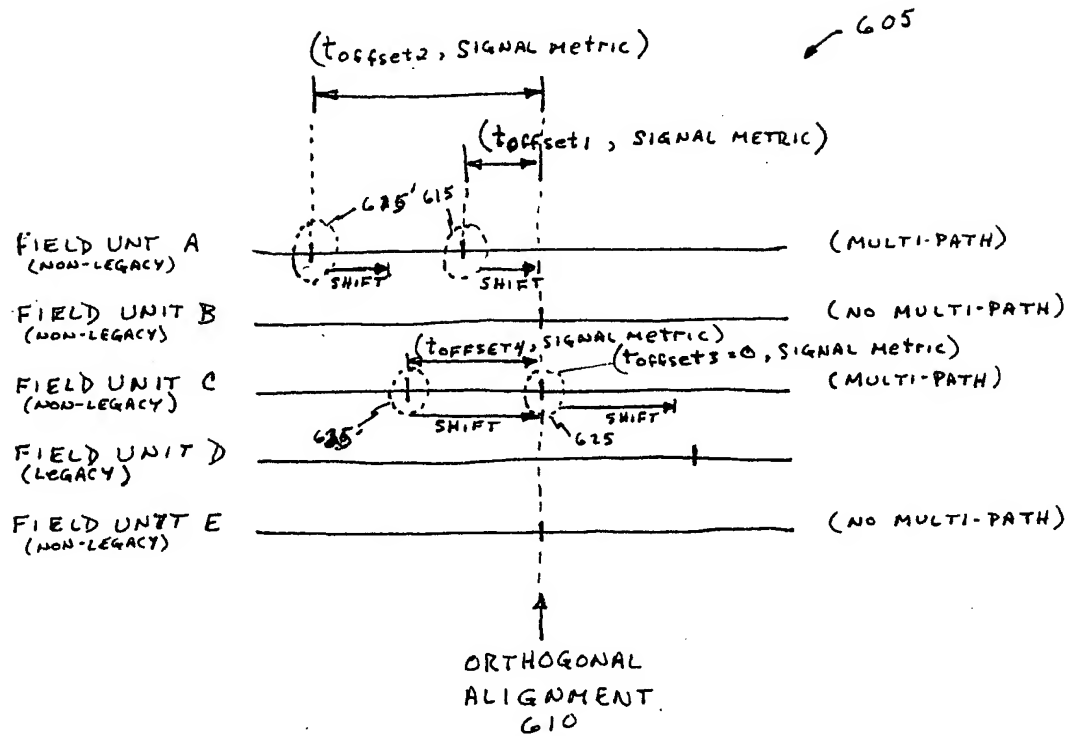 605
(toffset2, SIGNAL METRIC)
(toffset1, SIGNAL METRIC)
615
FIELD UNT A
(NON-LEGACY)
SHIFT
SHIFT
(MULTI-PATH)
FIELD UNIT B
(NON-LEGACY)
(NO MULTI-PATH)
(tOFFSET4, SIGNAL METRIC)
(tOFFSET3=0, SIGNAL METRIC)
FIELD UNIT C
(NON-LEGACY)
(MULTI-PATH)
SHIFT
SHIFT
625
FIELD UNIT D
(LEGACY)
FIELD UNIT E
(NON-LEGACY)
(NO MULTI-PATH)
ORTHOGONAL
ALIGNMENT
610